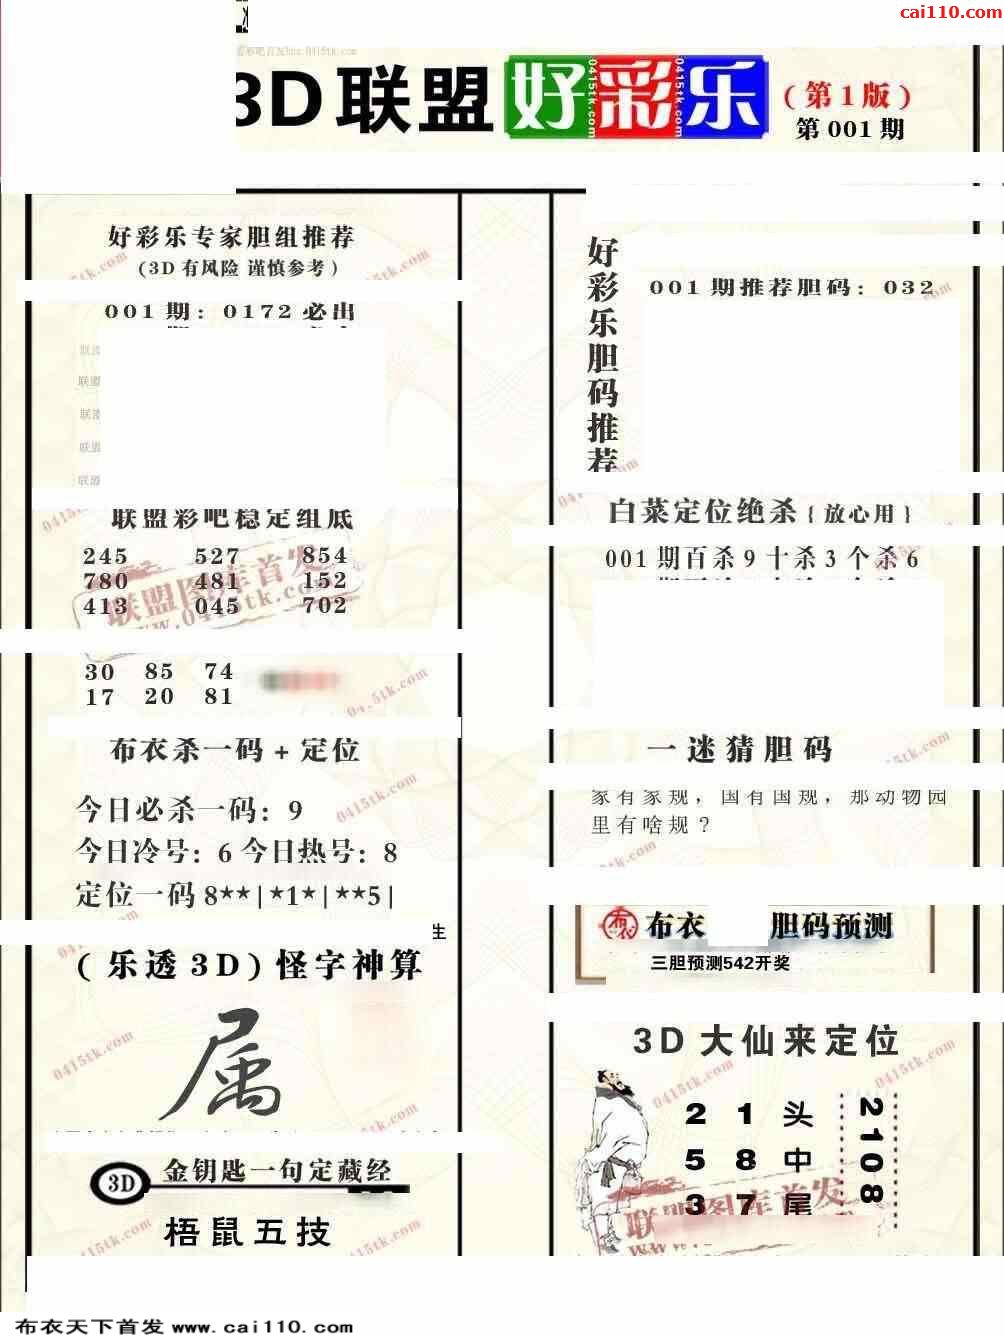 cai110.com
3D联盟好彩乐
(第1版)
第001期
好彩乐专家胆组推荐
(3D有风险 谨慎参考)
001期: 0172必出
联盟彩吧稳定组底
245 527 854
780 481 152
413 045 702
联盟图库首发
www.0415tk.com
30 85 74
17 20 81
布衣杀一码+定位
今日必杀一码: 9
今日冷号: 6 今日热号: 8
定位一码8**|*1*|**5|
生
(乐透3D)怪字神算
属
3D
金钥匙一句定藏经
梧鼠五技
好彩乐胆码推荐
001期推荐胆码: 032
白菜定位绝杀{放心用}
001期百杀9十杀3个杀6
一迷猜胆码
家有家规, 国有国规, 那动物园
里有啥规?
布衣
布衣 胆码预测
三胆预测542开奖
3D大仙来定位
2 1 头
5 8 中
3 7 尾
2108
联盟图库首发
0415tk.com
布衣天下首发 www.cai110.com